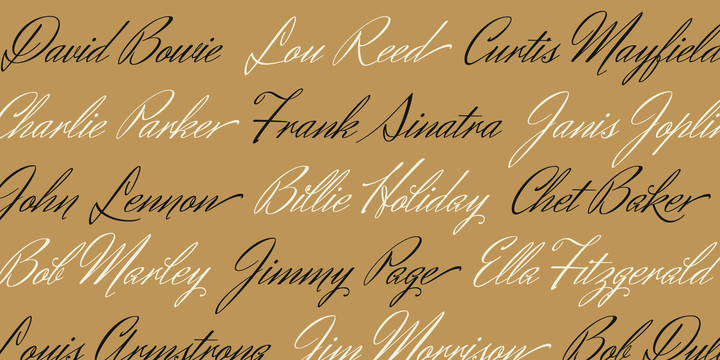 David Bowie Lou Reed Curtis Mayfield
Charlie Parker Frank Sinatra Janis Joplin
John Lennon Billie Holiday Chet Baker
Bob Marley Jimmy Page Ella Fitzgerald
Louis Armstrong Jim Morrison Bob